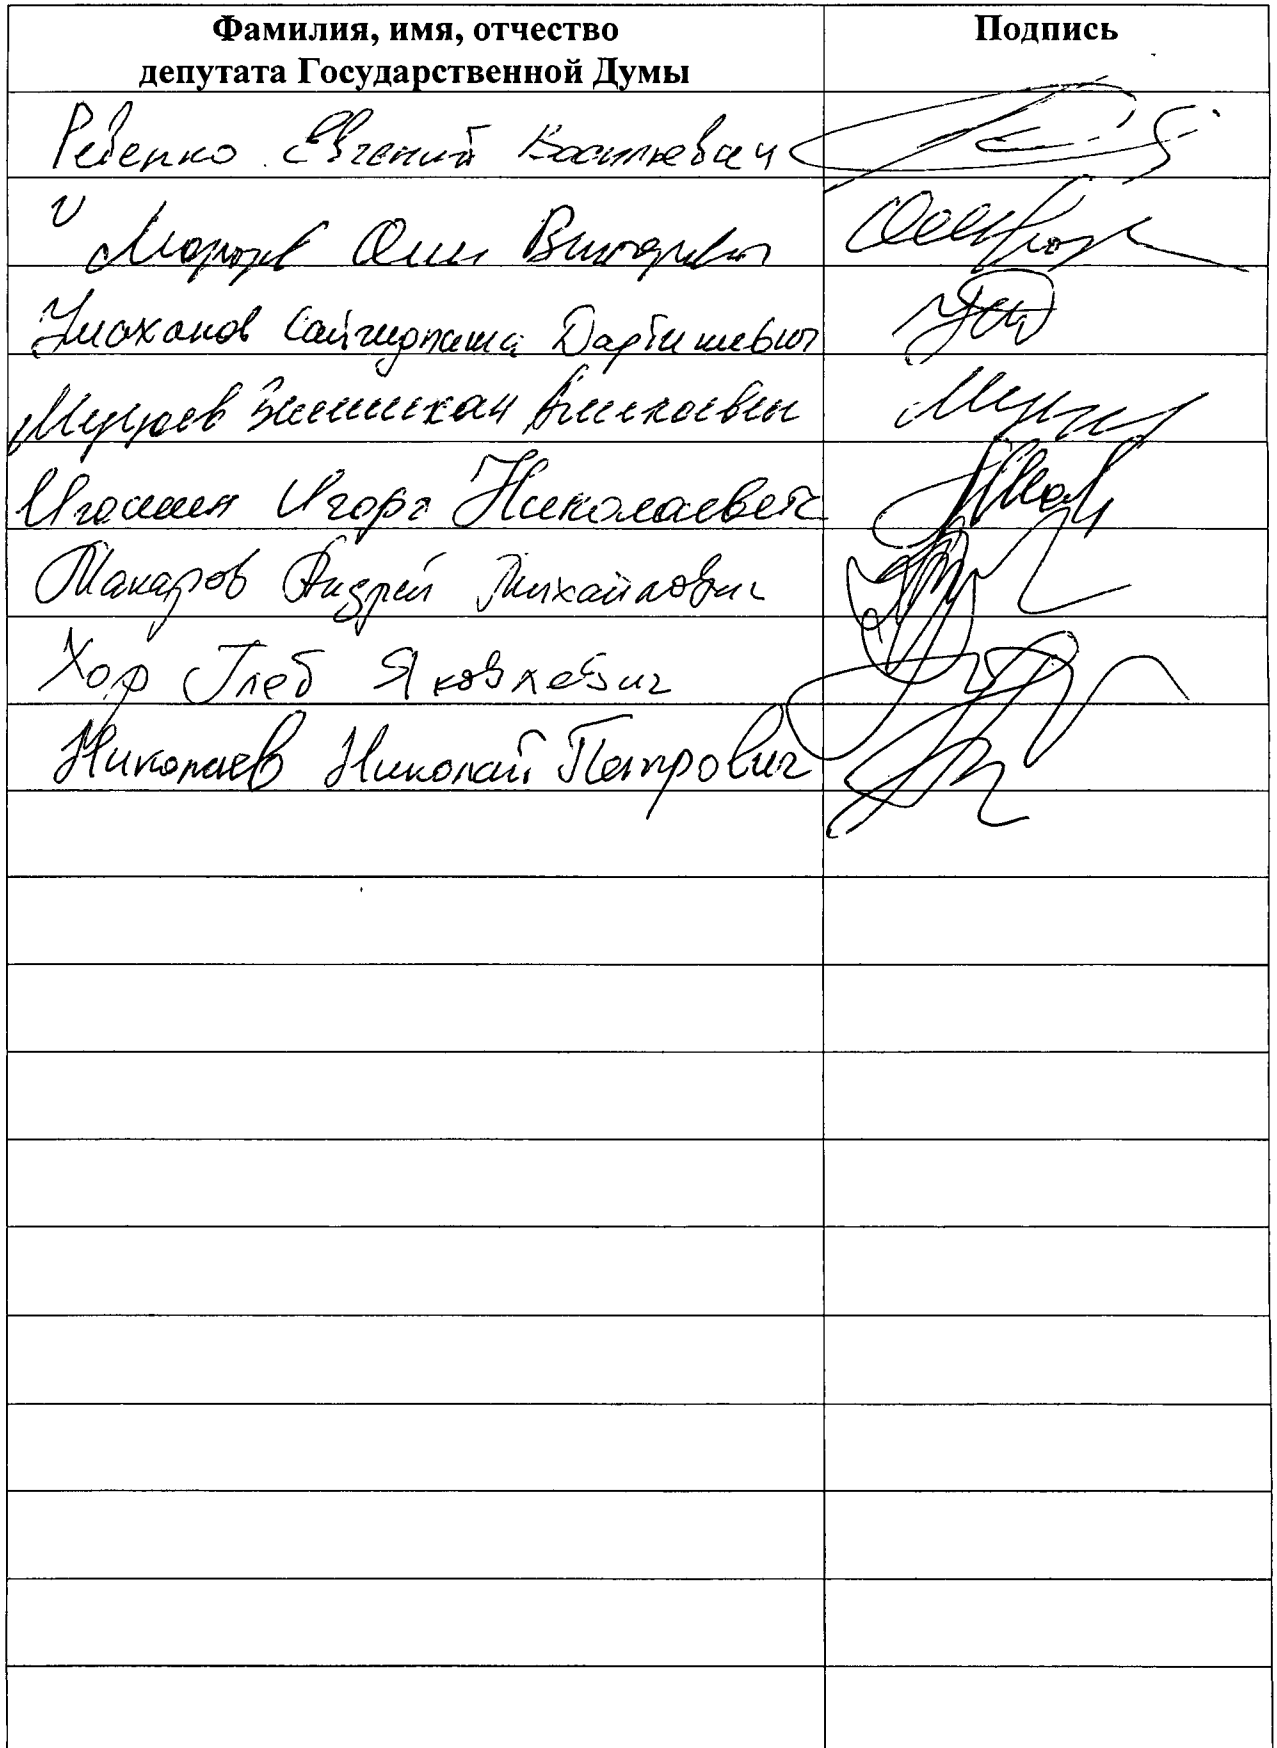 Фамилия, имя, отчество
депутата Государственной Думы
Подпись
Ревенко Евгений Васильевич
Морозов Олег Викторович
Умаханов Сайгидпаша Дарбишевич
Муцоев Зелимхан Аликоевич
Игошин Игорь Николаевич
Макаров Андрей Михайлович
Хор Глеб Яковлевич
Николаев Николай Петрович